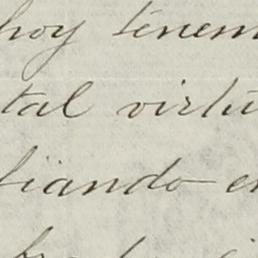 hoy tenem
tal virtu
fiando e